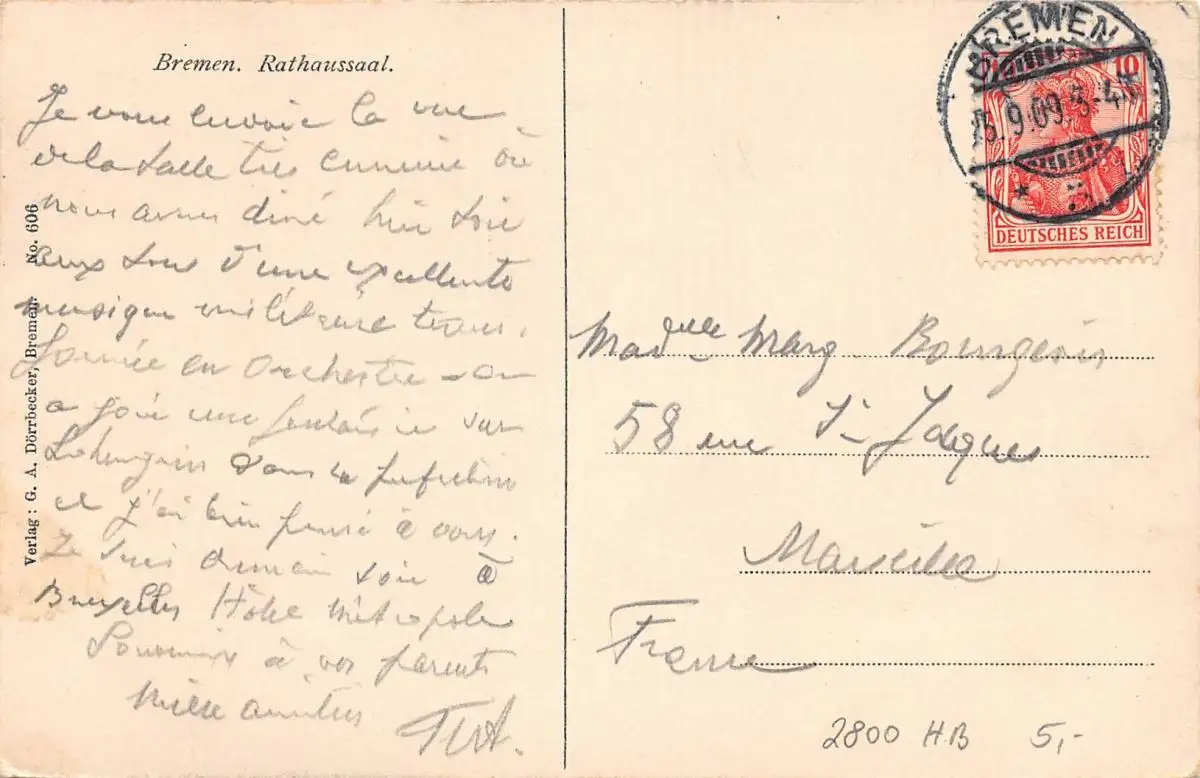 Bremen. Rathaussaal.
Je vous envoie la vue
de la salle très curieuse où
nous avons diné hier soir
aux sons d'une excellente
musique militaire trans-
formée en orchestre - on
a joué une fantaisie sur
Lohengrin dans la perfection
et j'ai bien pensé à vous.
Je suis demain soir à
Bruxelles Hôtel Métropole
Souvenirs à vos parents
mille amitiés
Verlag: G. A. Dörrbecker, Bremen. No. 606
BREMEN
9.09.3-4
10
DEUTSCHES REICH
Madelle Marg. Bourgeois
58 rue St Jacques
Marseille
France
2800 HB 5,-